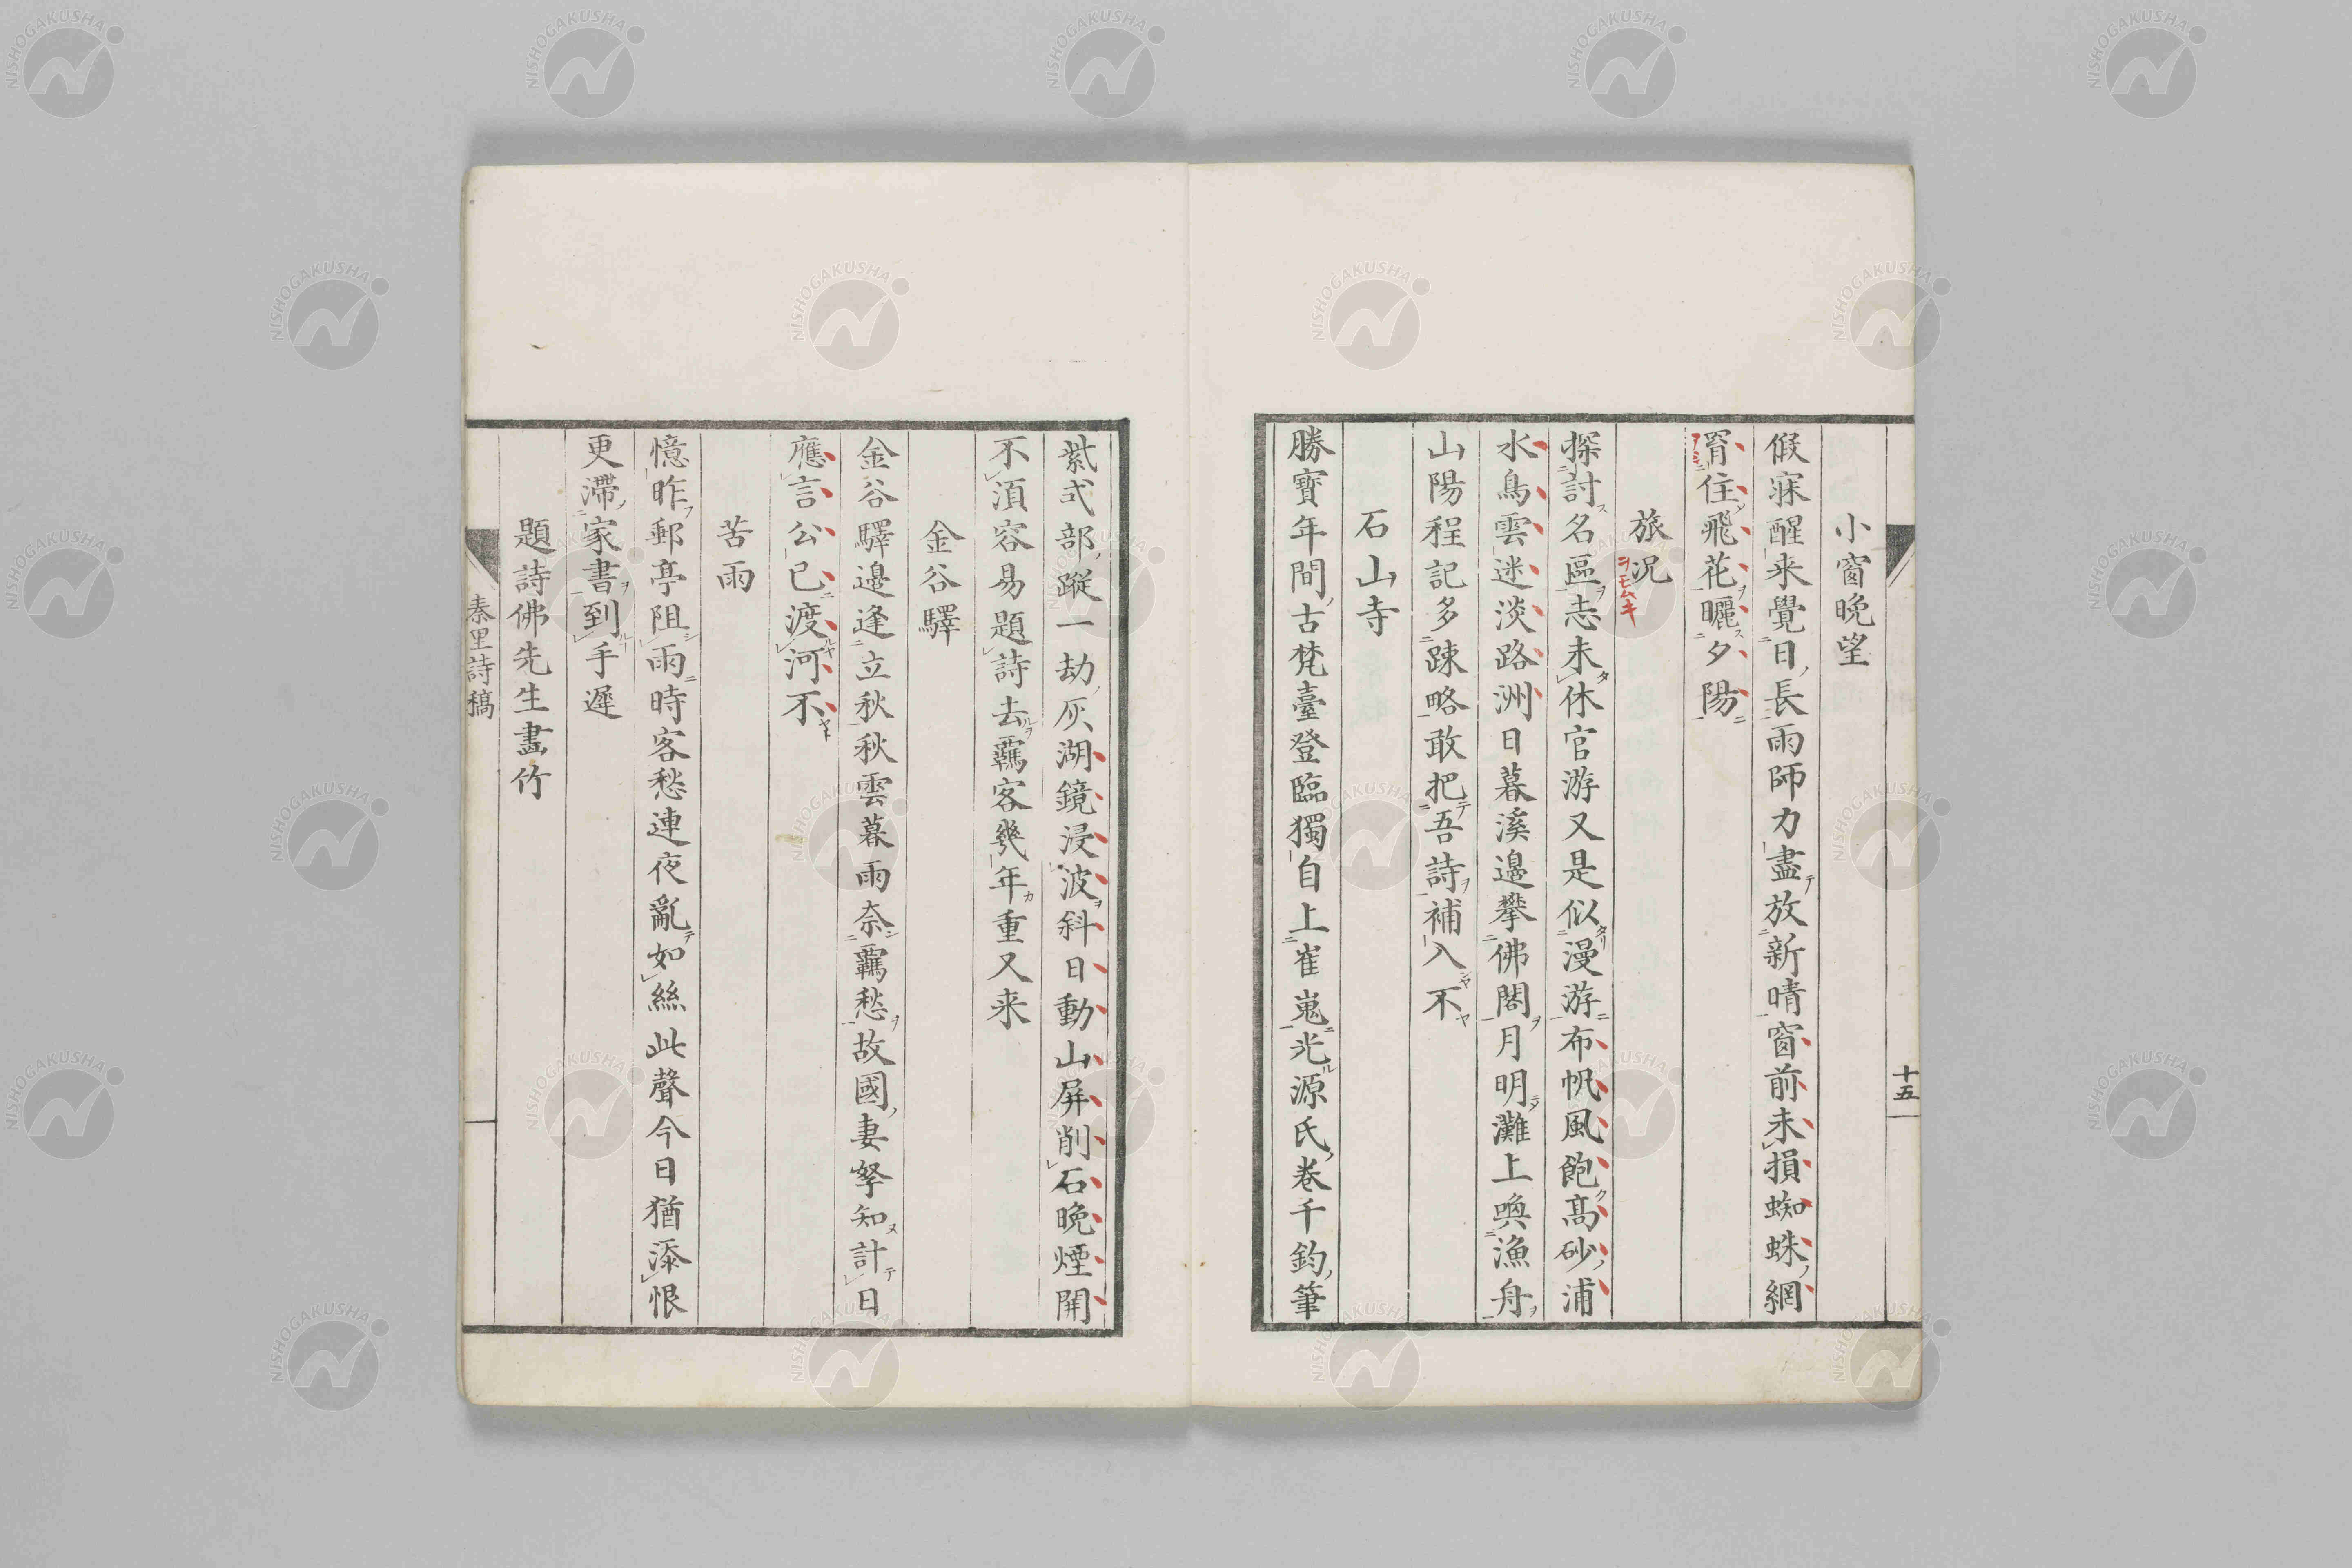 十五
小窗晩望
假寐醒来覺日長雨師力盡放新晴窗前未損蜘蛛網
罥住飛花曬夕陽
旅况
ヲモムキ
探討名區志未休官游又是似漫游布帆風飽髙砂浦
水鳥雲迷淡路洲日暮溪邉攀佛閣月明灘上喚漁舟
山陽程記多踈略敢把吾詩補入不
石山寺
勝寳年間古梵臺登臨獨自上崔嵬光源氏卷千鈞筆
紫式部蹤一劫灰湖鏡浸波斜日動山屏削石晩煙開
不湏容易題詩去羈客幾年重又来
金谷驛
金谷驛邉逢立秋秋雲暮雨奈羈愁故國妻孥知計日
應言公已渡河不
苦雨
憶昨郵亭阻雨時客愁連夜亂如絲此聲今日猶添恨
更滯家書到手遲
題詩佛先生畵竹
秦里詩稿
NISHOGAKUSHA